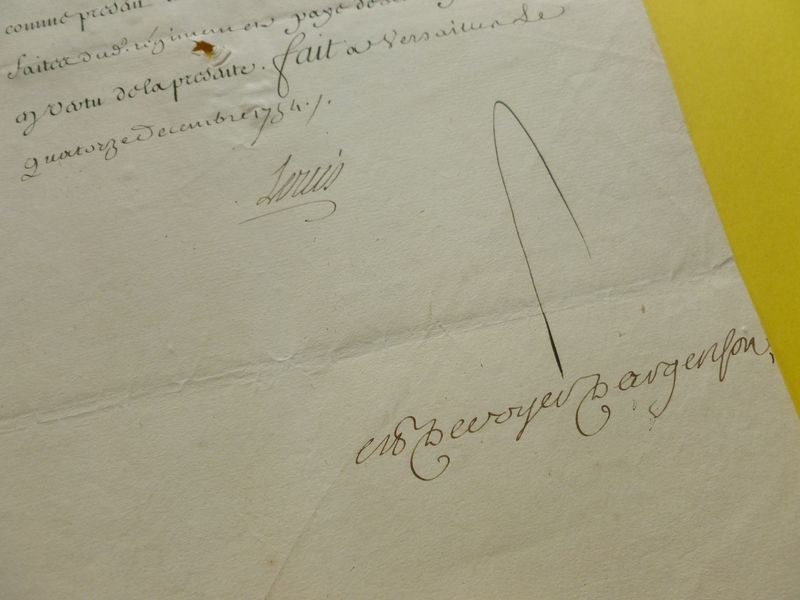 comme presdit
faites dud. regiment en payé de
en vertu de la presente. fait a Versailles Le
quatorze Decembre 1754./.
Louis
M De voyer D argenson,